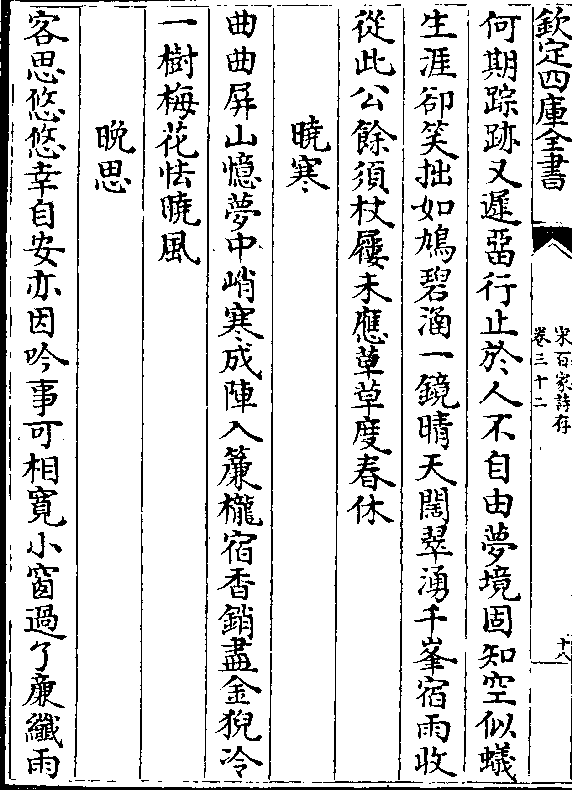 欽定四庫全書
宋百家詩存
卷三十二
十八
何期踪跡又遲畱行止於人不自由夢境固知空似蟻
生涯卻笑拙如鳩碧涵一鏡晴天闊翠湧千峯宿雨收
從此公餘須杖屨未應草草度春休
曉寒
曲曲屏山憶夢中峭寒成陣入簾櫳宿香銷盡金猊冷
一樹梅花怯曉風
晚思
客思悠悠幸自安亦因吟事可相寬小窗過了廉纖雨